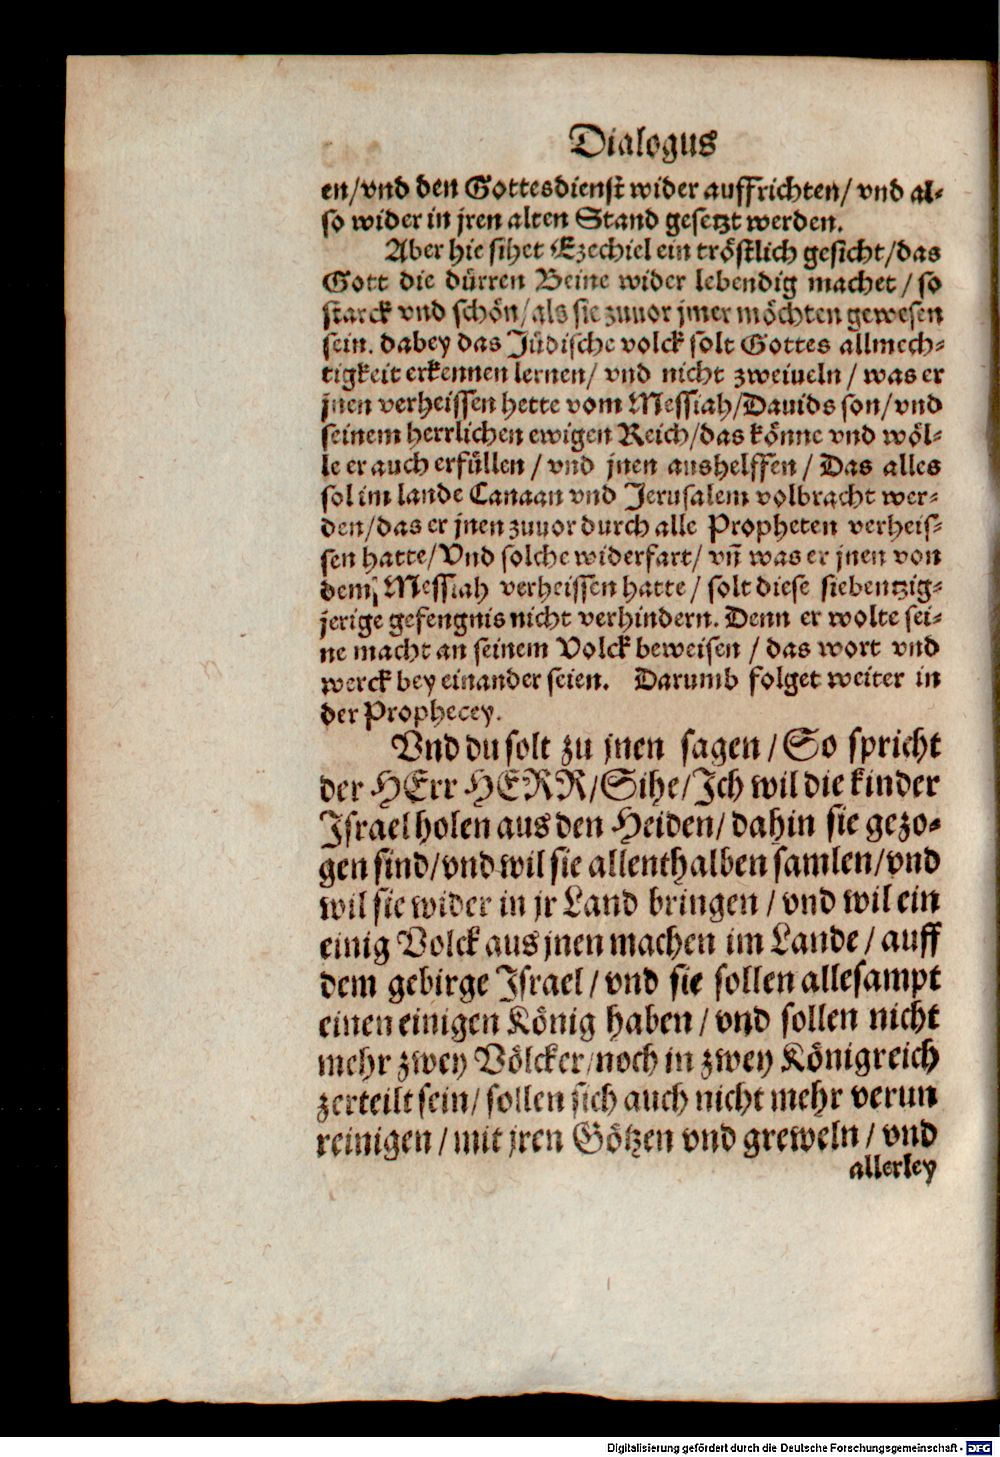 Dialogus
en/vnd den Gottesdienst wider auffrichten/ vnd al-
so wider in jren alten Stand gesetzt werden.
Aber hie sihet Ezechiel ein tröstlich gesicht/das
Gott die dürren Beine wider lebendig machet / so
starck vnd schön/als sie zuuor jmer möchten gewesen
sein. dabey das Jüdische volck solt Gottes allmech-
tigkeit erkennen lernen/ vnd nicht zweiueln / was er
jnen verheissen hette vom Messiah/Dauids son/vnd
seinem herrlichen ewigen Reich/das könne vnd wöl-
le er auch erfüllen / vnd jnen aushelffen / Das alles
sol im lande Canaan vnd Jerusalem volbracht wer-
den/das er jnen zuuor durch alle Propheten verheis-
sen hatte/Vnd solche widerfart/ vñ was er jnen von
dem Messiah verheissen hatte / solt diese siebentzig-
jerige gefengnis nicht verhindern. Denn er wolte sei-
ne macht an seinem Volck beweisen / das wort vnd
werck bey einander seien. Darumb folget weiter in
der Prophecey.
Vnd du solt zu jnen sagen / So spricht
der HErr HERR/Sihe/Ich wil die kinder
Israel holen aus den Heiden/ dahin sie gezo-
gen sind/vnd wil sie allenthalben samlen/vnd
wil sie wider in jr Land bringen / vnd wil ein
einig Volck aus jnen machen im Lande / auff
dem gebirge Israel / vnd sie sollen allesampt
einen einigen König haben / vnd sollen nicht
mehr zwey Völcker/noch in zwey Königreich
zerteilt sein/ sollen sich auch nicht mehr verun
reinigen / mit jren Götzen vnd greweln / vnd
allerley
Digitalisierung gefördert durch die Deutsche Forschungsgemeinschaft - DFG